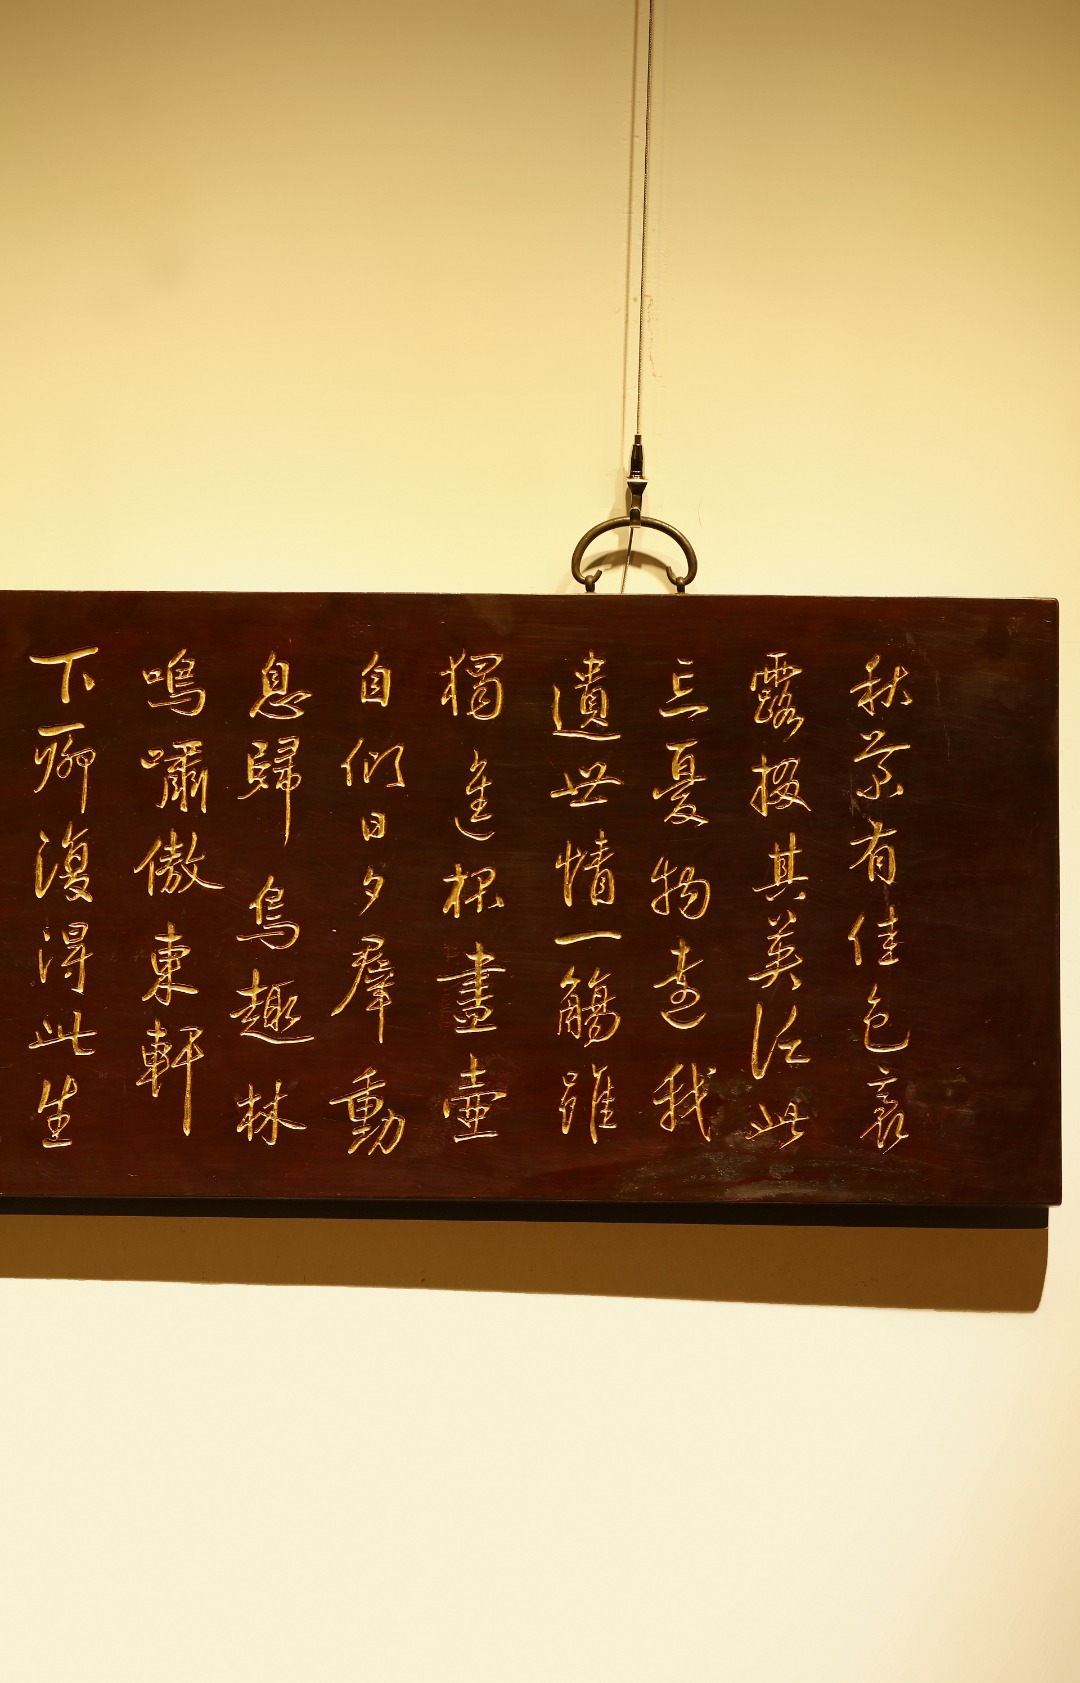 秋菊有佳色裛
露掇其英泛此
忘憂物遠我
遺世情一觴雖
獨進杯盡壺
自傾日夕羣動
息歸鳥趨林
鳴嘯傲東軒
下聊復得此生